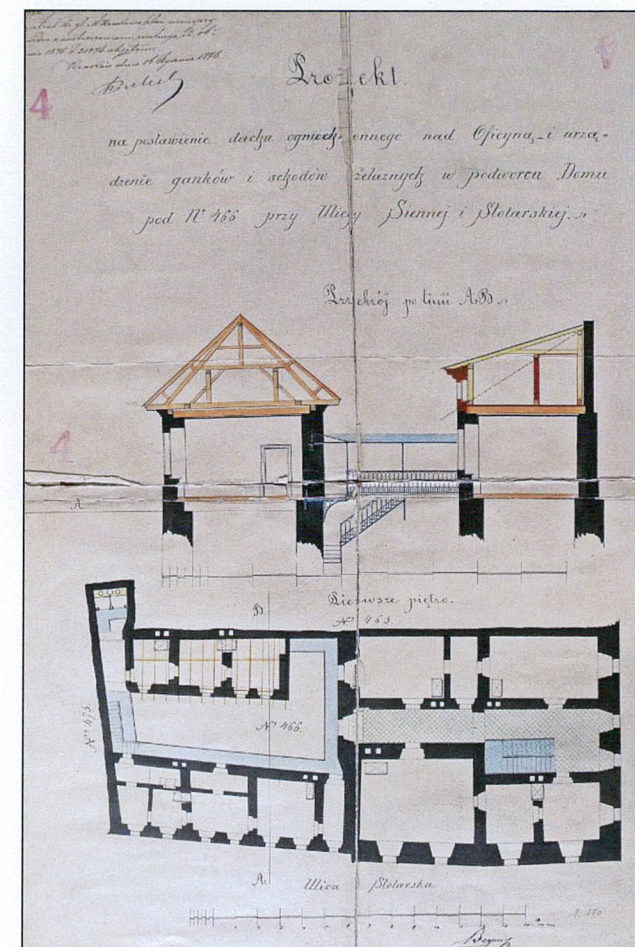 4
Projekt.
na postawienie dachu ogniochronnego nad Oficyną i urzą=
dzenie ganków i schodów żelaznych w podworcu Domu
pod Nº 466 przy Ulicy Siennej i Stolarskiej.
Przekrój po linii A.B.
4
A
Pierwsze piętro.
B.
Nº 465
Nº 475.
Nº 466.
A.
Ulica Stolarska